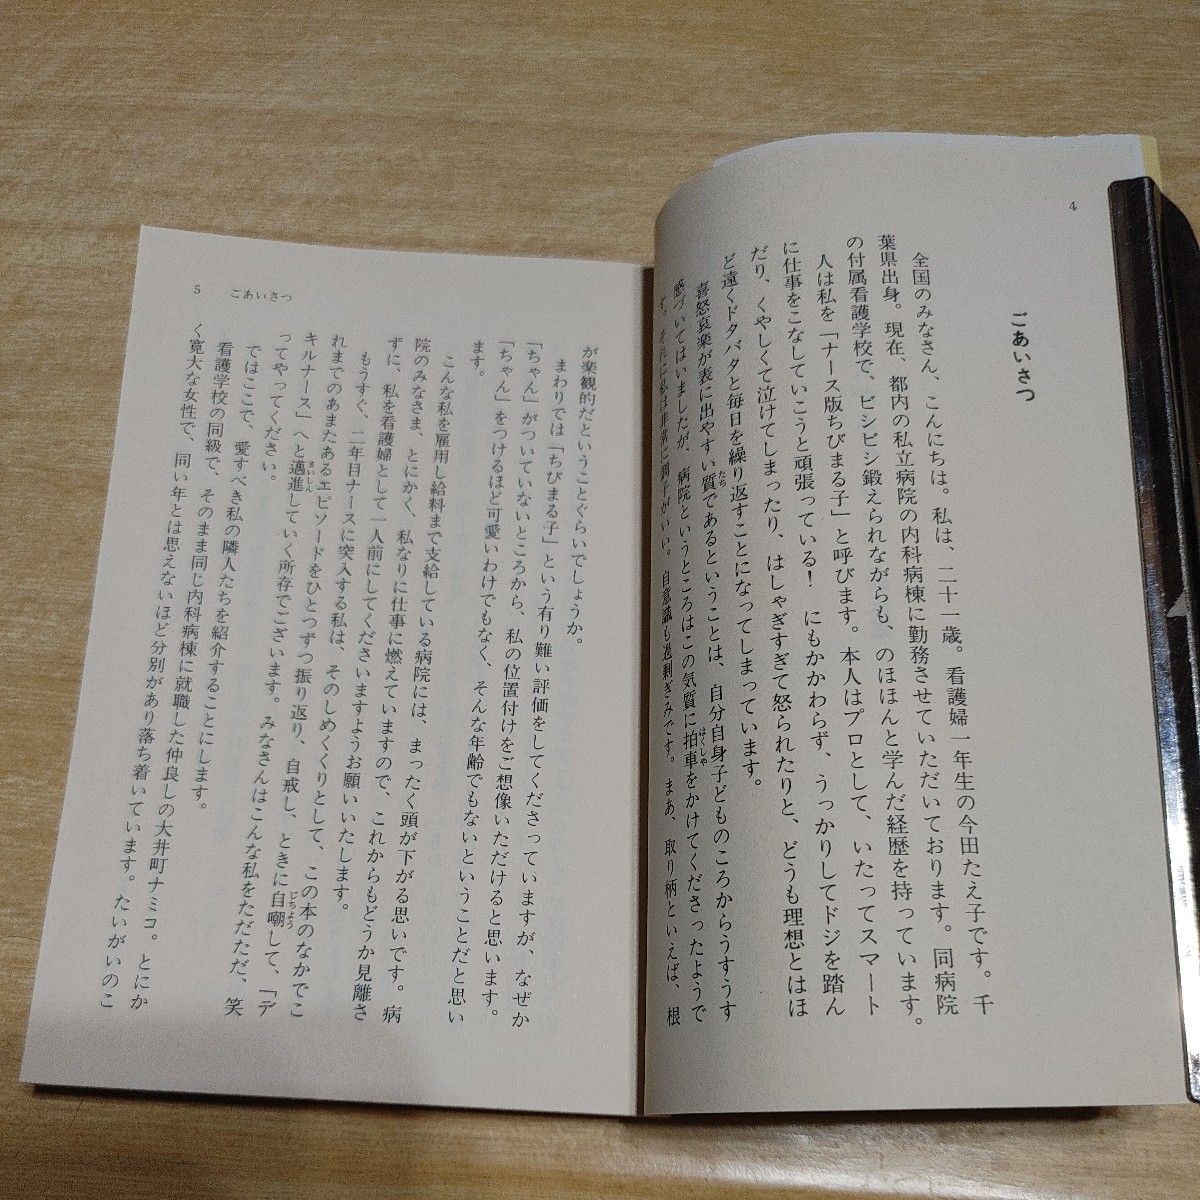 4
ごあいさつ
全国のみなさん、こんにちは。私は、二十一歳。看護婦一年生の今田たえ子です。千
葉県出身。現在、都内の私立病院の内科病棟に勤務させていただいております。同病院
の付属看護学校で、ビシビシ鍛えられながらも、のほほんと学んだ経歴を持っています。
人は私を「ナース版ちびまる子」と呼びます。本人はプロとして、いたってスマート
に仕事をこなしていこうと頑張っている！　にもかかわらず、うっかりしてドジを踏ん
だり、くやしくて泣けてしまったり、はしゃぎすぎて怒られたりと、どうも理想とはほ
ど遠くドタバタと毎日を繰り返すことになってしまっています。
喜怒哀楽が表に出やすい質であるということは、自分自身子どものころからうすうす
たち
感づいてはいましたが、病院というところはこの気質に拍車をかけてくださったようで
はくしゃ
す。それに私は非常に間ちがい。自意識も過剰ぎみです。まあ、取り柄といえば、根
5
ごあいさつ
が楽観的だということぐらいでしょうか。
まわりでは「ちびまる子」という有り難い評価をしてくださっていますが、なぜか
「ちゃん」がついていないところから、私の位置付けをご想像いただけると思います。
「ちゃん」をつけるほど可愛いわけでもなく、そんな年齢でもないということだと思い
ます。
こんな私を雇用し給料まで支給している病院には、まったく頭が下がる思いです。病
院のみなさま、とにかく、私なりに仕事に燃えていますので、これからもどうか見離さ
ずに、私を看護婦として一人前にしてくださいますようお願いいたします。
もうすぐ、二年目ナースに突入する私は、そのしめくくりとして、この本のなかでこ
れまでのあまたあるエピソードをひとつずつ振り返り、自戒し、ときに自嘲して、「デ
じちょう
キルナース」へと邁進していく所存でございます。みなさんはこんな私をただただ、笑
まいしん
ってやってください。
ではここで、愛すべき私の隣人たちを紹介することにします。
看護学校の同級で、そのまま同じ内科病棟に就職した仲良しの大井町ナミコ。とにか
く寛大な女性で、同い年とは思えないほど分別があり落ち着いています。たいがいのこ